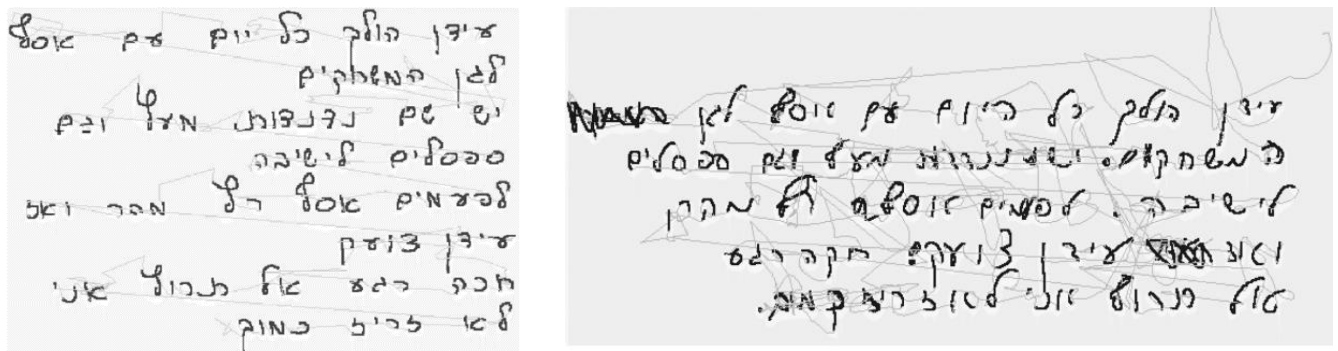 עידן הולך כל יום עם אסף
לגן המשחקים
יש שם נדנדות מעץ וגם
ספסלים לישיבה
לפעמים אסף רץ מהר ואז
עידן צועק
חכה רגע אל תרוץ אני
לא זריז כמוך
עידן הולך כל היום עם אוסף לגן
המשחקים. יש נדנדות מעץ וגם ספסלים
לישיבה. לפעמים אוסף רץ מהר
ואז עידן צועק חקה רגע
אל תרוץ אני לא זריז קמוך.